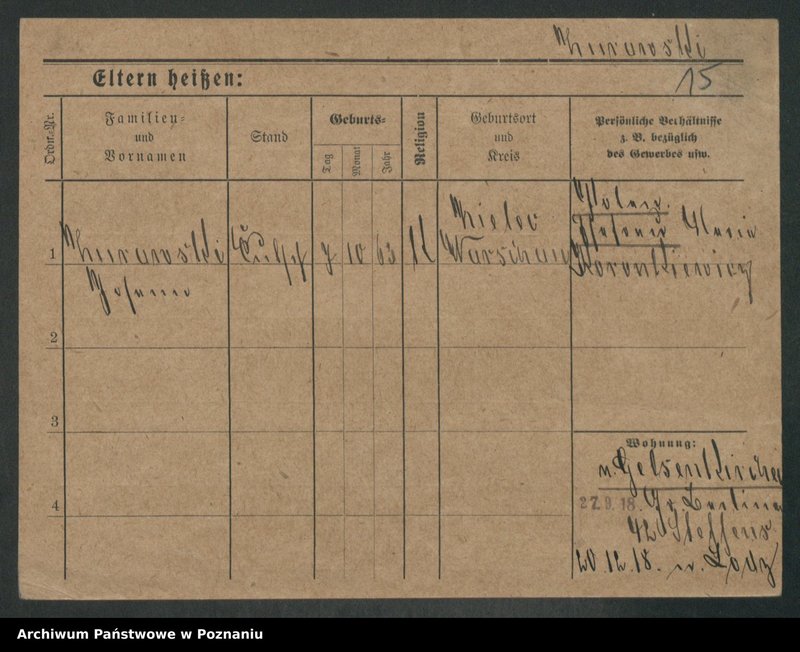 Zurawski
15
Eltern heißen:
Ordn.-Nr.
Familien-
und
Vornamen
Stand
Geburts-
Tag
Monat
Jahr
Religion
Geburtsort
und
Kreis
Persönliche Verhältnisse
z. B. bezüglich
des Gewerbes usw.
1
Zurawski
10 63
Warschau
Maria
2
3
4
Wohnung:
n. Gelsenkirchen
27.9.18. Gr. Berliner
42 Steffens
20.12.18. n. Lodz
Archiwum Państwowe w Poznaniu